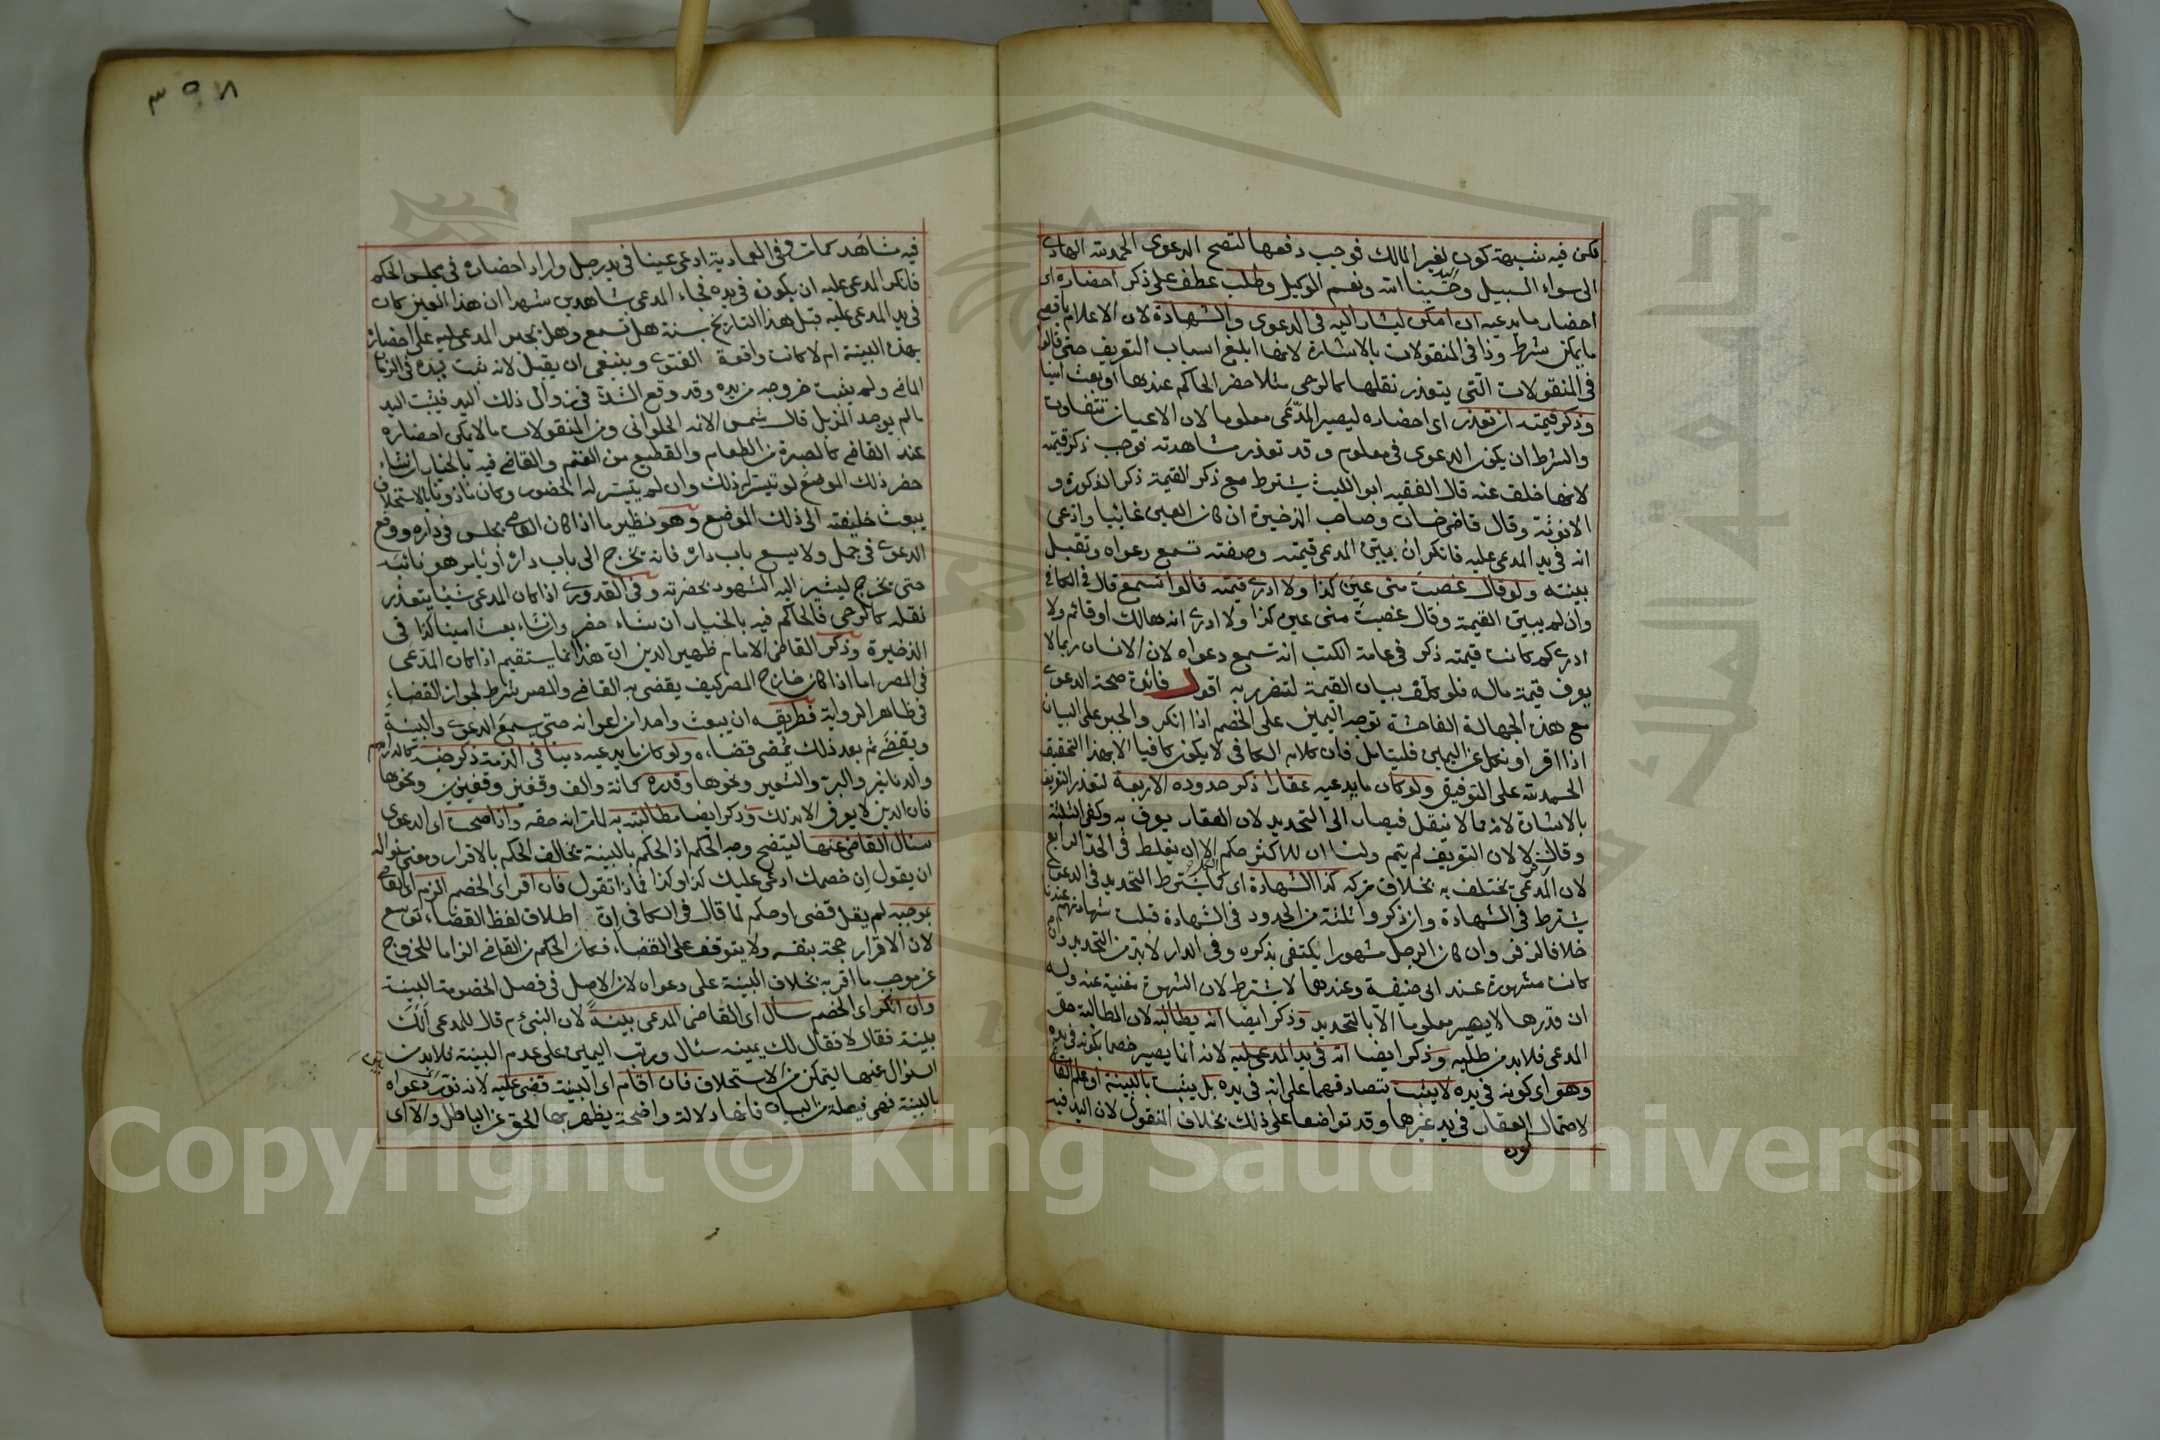 فكن فيه شبهة كون لغير المالك فوجب دفعها لتصح الدعوى الحمد لله الهادى
الى سواء السبيل وحسبنا الله ونعم الوكيل وطلب عطف على ذكر احضاره اى
احضار ما يدعيه ان امكن ليشار اليه فى الدعوى والشهادة لان الاعلام باقصى
ما يمكن شرط وذا فى المنقولات بالاشارة لانها ابلغ اسباب التعريف حتى قالوا
فى المنقولات التى يتعذر نقلها كالرحى مثلا حضر الحاكم عندها او بعث امينا
وذكر قيمته ان تعذر اى احضاره ليصير المدعى معلوما لان الاعيان تتفاوت
والشرط ان يكون الدعوى فى معلوم وقد تعذر مشاهدته فوجب ذكر قيمته
لانها خلف عنه قال الفقيه ابو الليث يشترط مع ذكر القيمة ذكر الذكورة و
الانوثة وقال قاضى خان وصاحب الذخيرة ان كان العين غائبا وادعى
انه فى يد المدعى عليه فانكر ان بين المدعى قيمته وصفته تسمع دعواه وتقبل
بينته ولو قال غصبت منى عين كذا ولا ادرى قيمته قالوا تسمع قال فى الكافى
وان لم يبين القيمة وقال غصبت منى عين كذا ولا ادرى انه هالك او قائم ولا
ادرى كم كانت قيمته ذكر فى عامة الكتب انه تسمع دعواه لان الانسان ربما لا
يعرف قيمة ماله فلو كلف بيان القيمة لتضرر به اقول فائدة صحة الدعوى
مع هذه الجهالة الفاحشة توجه اليمين على الخصم اذا انكر والجبر على البيان
اذا اقر او نكل عن اليمين فليتامل فان كلام الكافى لا يكون كافيا الا بهذا التحقيق
الحمد لله على التوفيق ولو كان ما يدعيه عقارا ذكر حدوده الاربعة لتعذر التعريف
بالاشارة لانه مما لا ينقل فيصار الى التحديد لان العقار يعرف به وكفى الثلثة
وقال زفر لا لان التعريف لم يتم ولنا ان للاكثر حكم الكل الا ان يغلط فى الحد الرابع
لان المدعى يختلف به بخلاف تركه كذا الشهادة اى كما يشترط التحديد فى الدعوى
يشترط فى الشهادة وان ذكروا ثلثة من الحدود فى الشهادة قبلت شهادتهم عندنا
خلافا لزفر وان كان الرجل مشهورا يكتفى بذكره وفى الدار لا بد من التحديد وان
كانت مشهورة عند ابى حنيفة وعندهما لا يشترط لان الشهرة مغنية عنه وله
ان قدرها لا يصير معلوما الا بالتحديد وذكر ايضا انه يطالبه لان المطالبة حق
المدعى فلا بد من طلبه وذكر ايضا انه فى يد المدعى عليه لانه انما يصير خصما بكونه فى يده
وهو اى كونه فى يده لا يثبت بتصادقهما على انه فى يده بل يثبت بالبينة او علم القاضى
لاحتمال العقار فى يد غيرهما وقد تواضعا على ذلك بخلاف المنقول لان اليد فيه
فيه مشاهد كما مر وفى العمادية ادعى عينا فى يد رجل واراد احضاره فى مجلس الحكم
فانكر المدعى عليه ان يكون فى يده فجاء المدعى بشاهدين شهدا ان هذا العين كان
فى يد المدعى عليه قبل هذا التاريخ بسنة هل تسمع وهل يجبر المدعى عليه على احضاره
بهذه البينة ام لا كانت واقعة الفتوى وينبغى ان يقبل لانه ثبت يده فى الزمان
الماضى ولم يثبت خروجه من يده وقد وقع الشك فى زوال ذلك اليد فيثبت اليد
ما لم يوجد المزيل قال شمس الائمة الحلوانى ومن المنقولات ما لا يمكن احضاره
عند القاضى كالصبرة من الطعام والقطيع من الغنم والقاضى فيه بالخيار ان شاء
حضر ذلك الموضع لو تيسر له ذلك وان لم يتيسر له الحضور وكان ماذونا بالاستخلاف
يبعث خليفته الى ذلك الموضع وهو نظير ما اذا كان القاضى يجلس فى داره ووقع
الدعوى فى جمل ولا يسع باب داره فانه يخرج الى باب داره او يامر نائبه
حتى يخرج ليشير اليه الشهود بحضرته وفى القدورى اذا كان المدعى شيئا يتعذر
نقله كالرحى فالحاكم فيه بالخيار ان شاء حضر وان شاء بعث امينا كذا فى
الذخيرة وذكر القاضى الامام ظهير الدين ان هذا انما يستقيم اذا كان المدعى
فى المصر اما اذا كان خارج المصر كيف يقضى به القاضى والمصر شرط لجواز القضاء
فى ظاهر الرواية فطريقه ان يبعث واحدا من اعوانه حتى يسمع الدعوى والبينة
ويقضى ثم بعد ذلك يمضى قضاءه ولو كان ما يدعيه دينا فى الذمة ذكر جنسه كالدراهم
والدنانير والبر والشعير ونحوها وقدره كمائة والف وقفيز وقفيزين ونحوها
فان الدين لا يعرف الا بذلك وذكر ايضا مطالبته به لما مر انه حقه واذا صحت اى الدعوى
سئال القاضى عنها ليتضح وجه الحكم اذ الحكم بالبينة يخالف الحكم بالاقرار ومعنى سؤاله
ان يقول ان خصمك ادعى عليك كذا وكذا فماذا تقول فان اقر اى الخصم الزم اى القاضى
بموجبه لم يقل قضى او حكم لما قال فى الكافى ان اطلاق لفظ القضاء توسع
لان الاقرار حجة بنفسه ولا يتوقف على القضاء فكان الحكم من القاضى الزاما للخروج
عن موجب ما اقر به بخلاف البينة على دعواه لان الاصل فى فصل الخصومة البينة
وان انكر اى الخصم سأل اى القاضى المدعى بينة لان النبى عم قال للمدعى ألك
بينة فقال لا فقال لك يمينه سئال ورتب اليمين على عدم البينة فلا بد من
السؤال عنها ليتمكن من الاستحلاف فان اقام اى البينة قضى عليه لانه نور دعواه
بالبينة فهى فيصلة من البيان فانها دلالة واضحة يظهر بها الحق عن الباطل والا اى
٣٥٨
Copyright © King Saud University